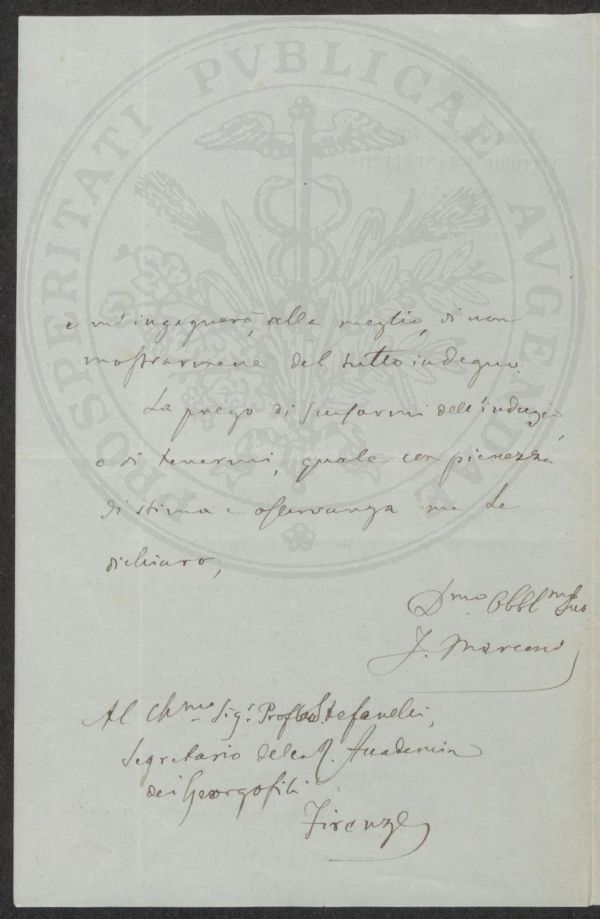 PROSPERITATI PVBLICAE AVGENDAE
e m'ingegnerò, alla meglio, di non
mostrarmene del tutto indegno.
La prego di scusarmi dell'indugio
e di tenermi, quale con pienezza
di stima e osservanza me Le
dichiaro,
Dmo Obblmo Suo
J. Marconi
Al Chmo Sigr Prof Stefanelli,
Segretario della R. Accademia
dei Georgofili
Firenze